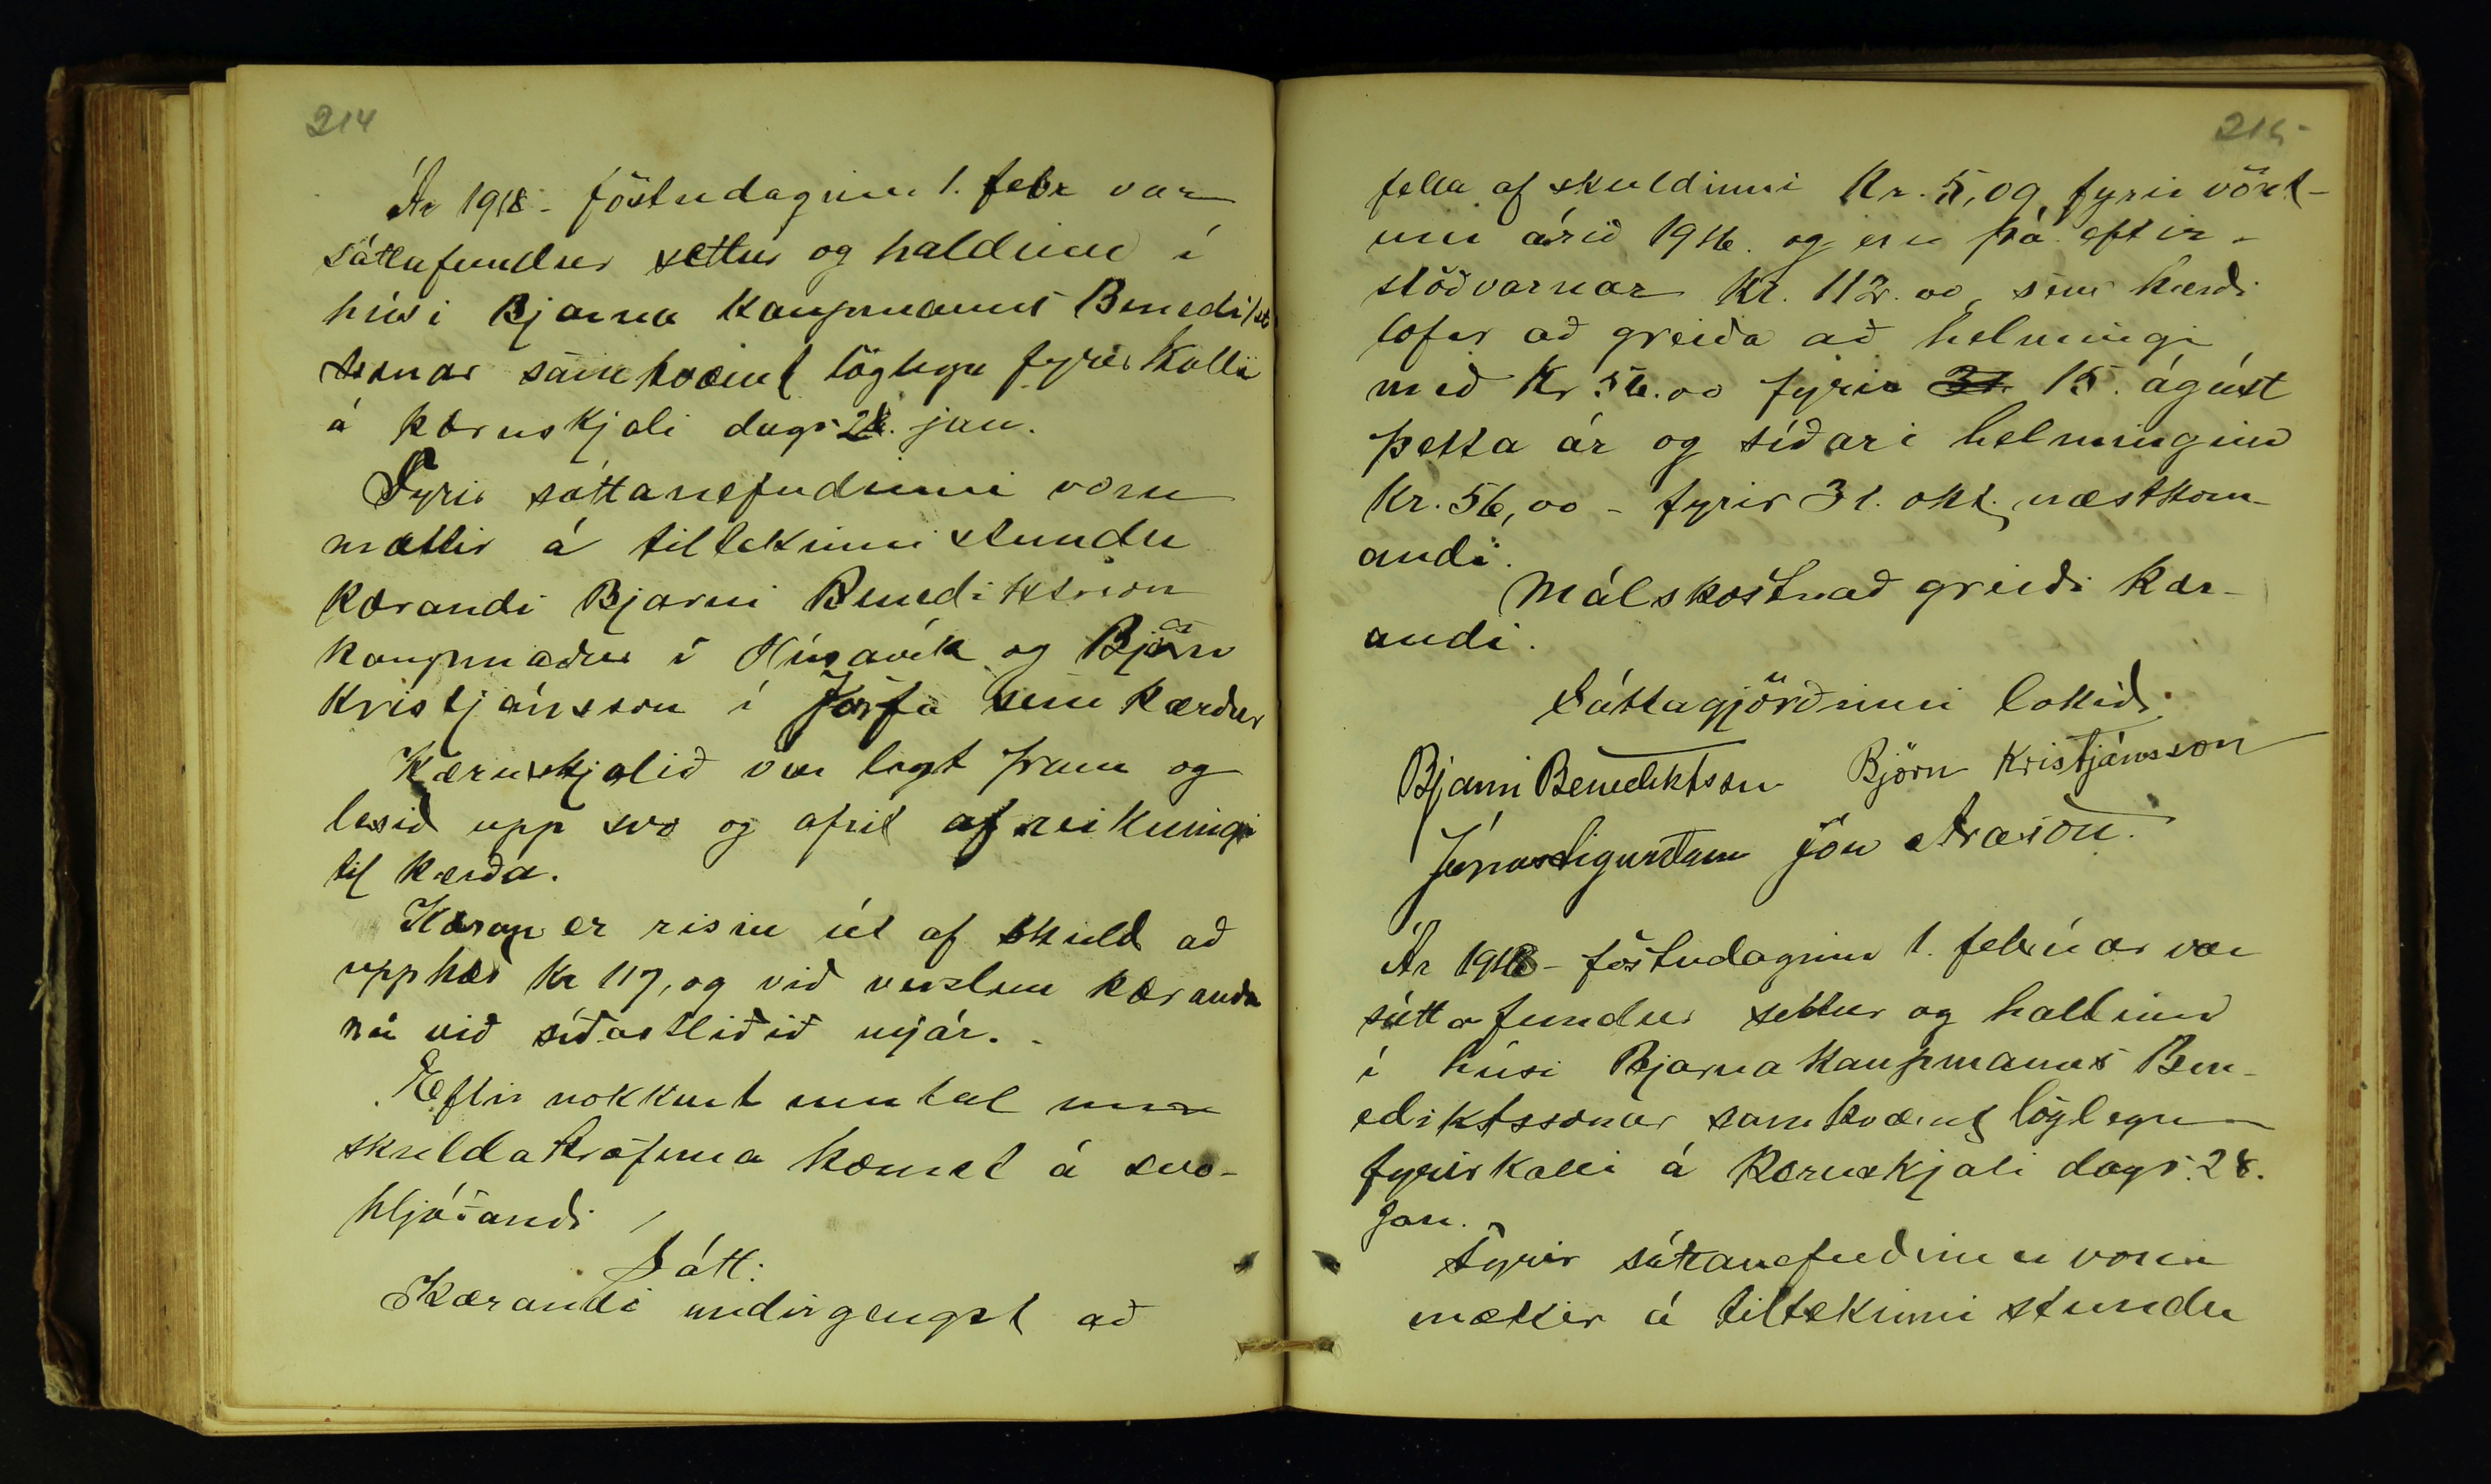 214
Ár 1918 - föstudaginn 1. febr var
sáttafundur settur og haldinn í
húsi Bjarna kaupmanns Benedikts
sonar samkvæmt löglegu fyrirkalli
á kæruskjali dags 28. jan.
Fyrir sáttanefndinni voru
mættir á tiltekinni stundu
kærandi Bjarni Benediktsson
kaupmaður í Húsavík og Björn
Kristjánsson í Jörfa sem kærður
Kæruskjalið var lagt fram og
lesið upp svo og afrit af reikningi
til kærða.
Kæran er risin út af skuld að
upphæð kr 117, og við verzlun kæranda
nú við síðastliðið nýár.
Eftir nokkurt umtal um
skuldakröfuna komst á svo-
hljóðandi
Sátt:
Kærandi undirgengst að
215
fella af skuldinni Kr. 5, og fyrir vöxt-
um árið 1916. og eru þá eftir-
stöðvarnar Kr. 112.00, sem kærði
lofar að greiða að helmingi
með Kr 56.00 fyrir 31. 15. ágúst
þetta ár og síðari helminginn
Kr. 56,00 - fyrir 31. okt. næstkom-
andi.
Málskostnað greiði kær-
andi.
Sáttagjörðinni lokið.
Bjarni Benediktsson Björn Kristjánsson
Jónas Sigurðsson Jón Arason.
Ár 1918 - föstudaginn 1. febrúar var
sáttafundur settur og haldinn
í húsi Bjarna kaupmanns Ben-
ediktssonar samkvæmt löglegu
fyrirkalli á kæruskjali dags. 28.
Jan.
Fyrir sáttanefndinni voru
mættir á tiltekinni stundu